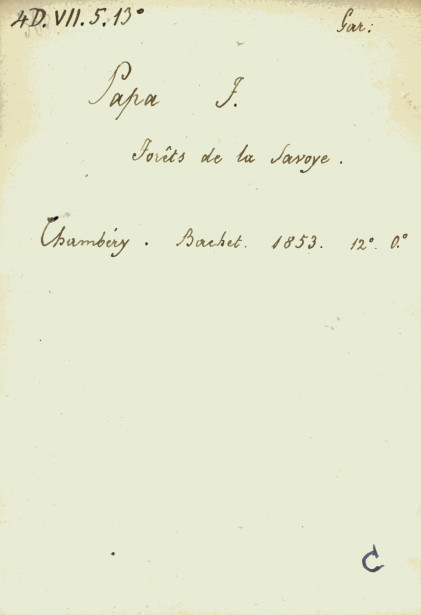 4D. VII. 5. 13°
Gar:
Papa J.
Forêts de la Savoye.
Chambéry. Bachet. 1853. 12°. 0.°
C